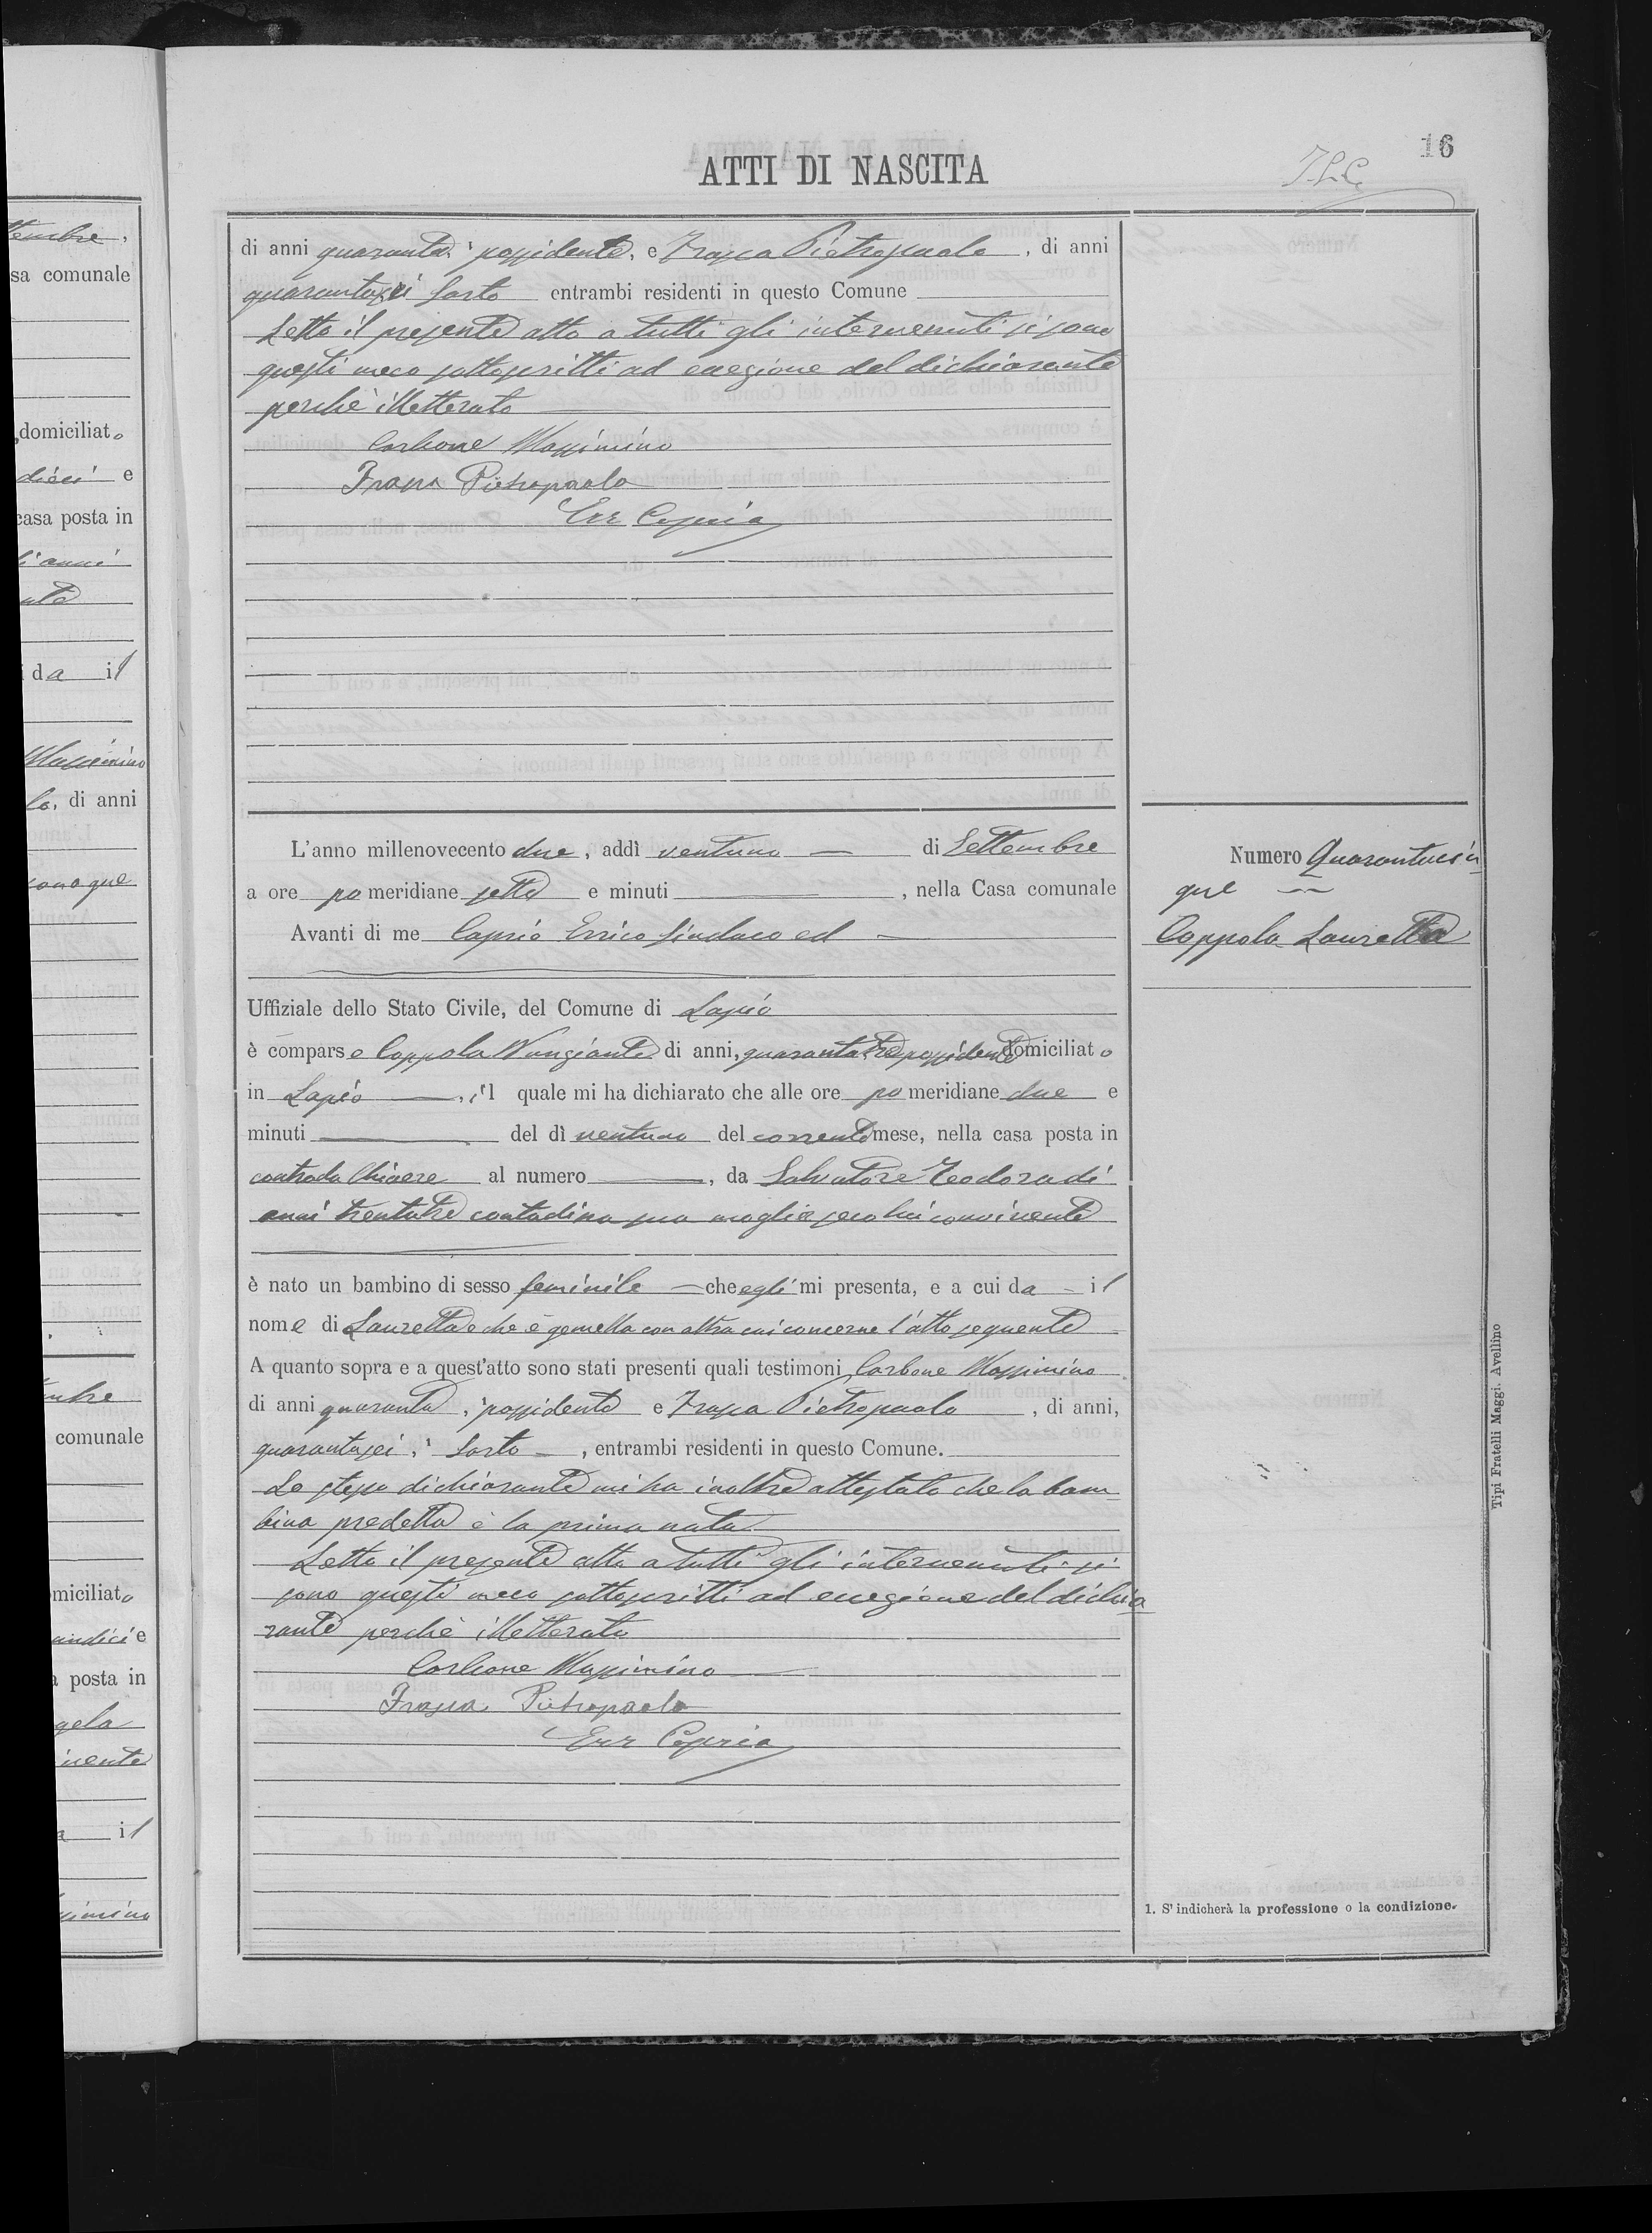 16
ATTI DI NASCITA
tembre,
sa comunale
domiciliato
dieci e
casa posta in
di anni
da il
Massimino
lo, di anni
comunale
domiciliato
undici e
posta in
gela
vivente
il
di anni quaranta possidente, e Frasca Pietropaolo, di anni
quarantasei Sarto entrambi residenti in questo Comune
Letto il presente atto a tutti gli intervenuti si sono
questi meco sottoscritti ad eccezione del dichiarante
perchè illetterato
Carbone Massimino
Frasca Pietropaolo
Err Caprio
L'anno millenovecento due, addì ventuno di Settembre
a ore pomeridiane sette e minuti , nella Casa comunale
Avanti di me Caprio Errico Sindaco ed
Uffiziale dello Stato Civile, del Comune di Lapio
è comparso Coppola Nunziante di anni, quarantatre possidente domiciliato
in Lapio , il quale mi ha dichiarato che alle ore pomeridiane due e
minuti del dì ventuno del corrente mese, nella casa posta in
contrada Chiaere al numero , da Salvatore Teodora di
anni trentatre contadina sua moglie seco lui convivente
è nato un bambino di sesso feminile che egli mi presenta, e a cui da il
nome di Lauretta e che è gemella con altra cui concerne l'atto seguente
A quanto sopra e a quest'atto sono stati presenti quali testimoni Carbone Massimino
di anni quaranta, possidente e Frasca Pietropaolo , di anni,
quarantasei, Sarto , entrambi residenti in questo Comune.
Lo stesso dichiarante mi ha inoltre attestato che la bam
bina predetta è la prima nata
Letto il presente atto a tutti gli intervenuti si
sono questi meco sottoscritti ad eccezione del dichia
rante perchè illetterato
Carbone Massimino
Frasca Pietropaolo
Err Caprio
Numero Quarantacin
que
Coppola Lauretta
1. S'indicherà la professione o la condizione.
Tipi Fratelli Maggi. Avellino